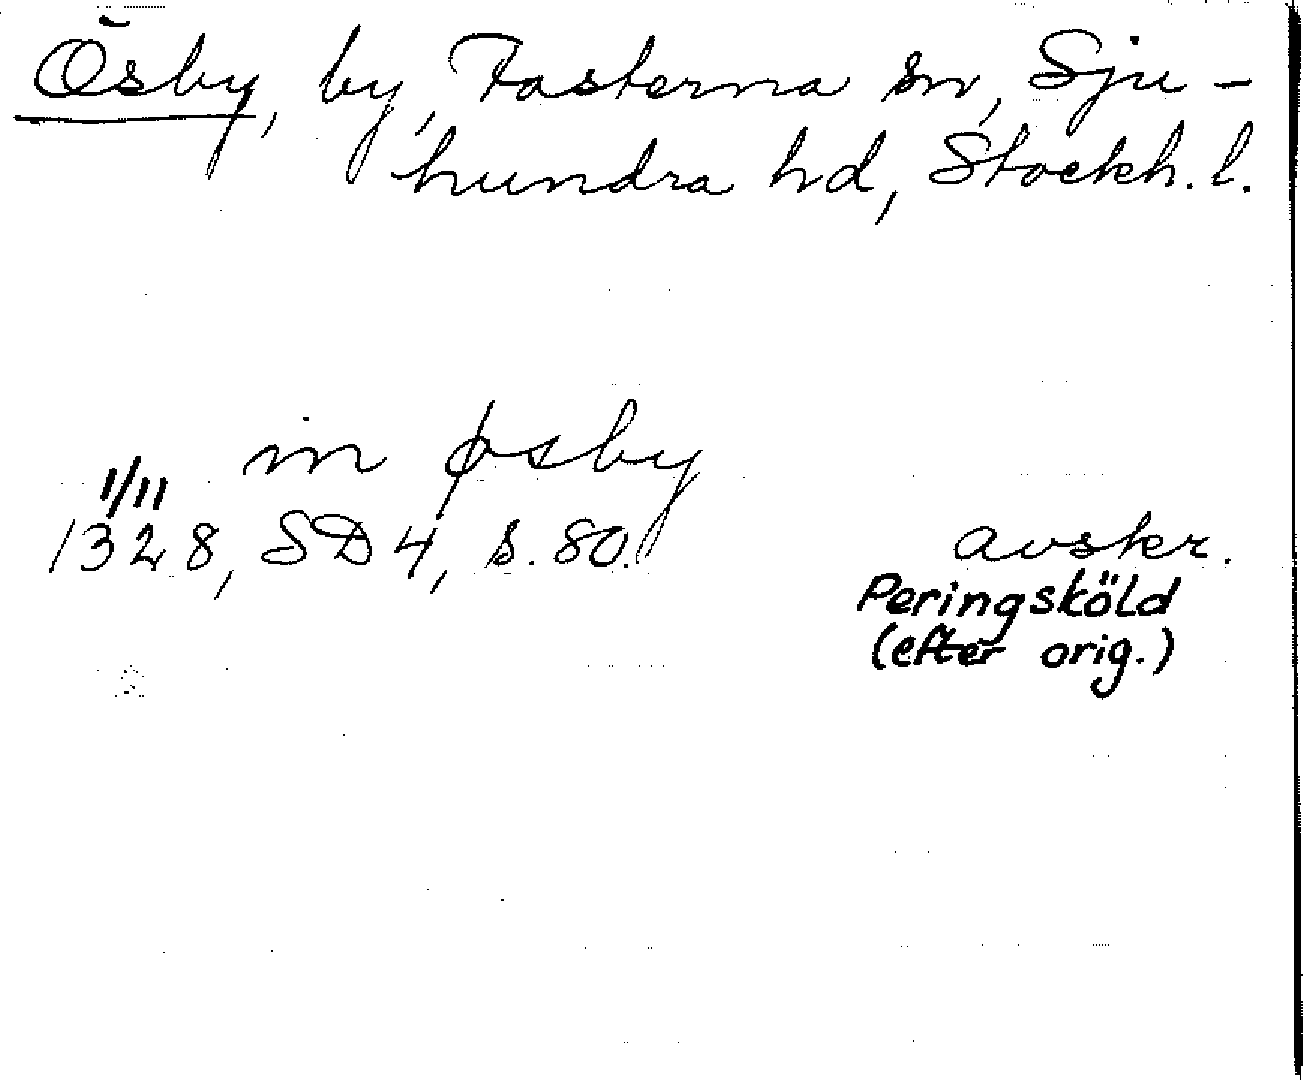 Ösby, by, Fasterna sn, Sju-
hundra hd, Stockh. l.
in øsby
1/11
1328, SD 4, s. 80.
avskr.
Peringsköld
(efter orig.)